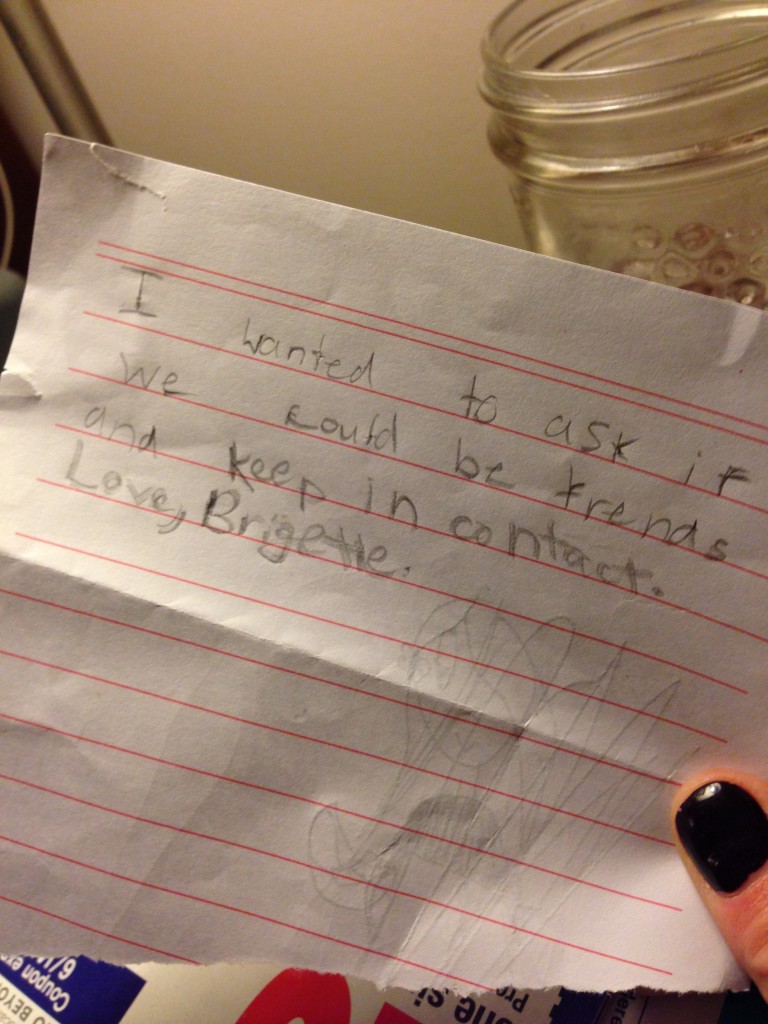 I wanted to ask if
we could be frends
and keep in contact.
Love, Brigette.
Coupon ex
6/1
O BEYO
one si
Pro
dere